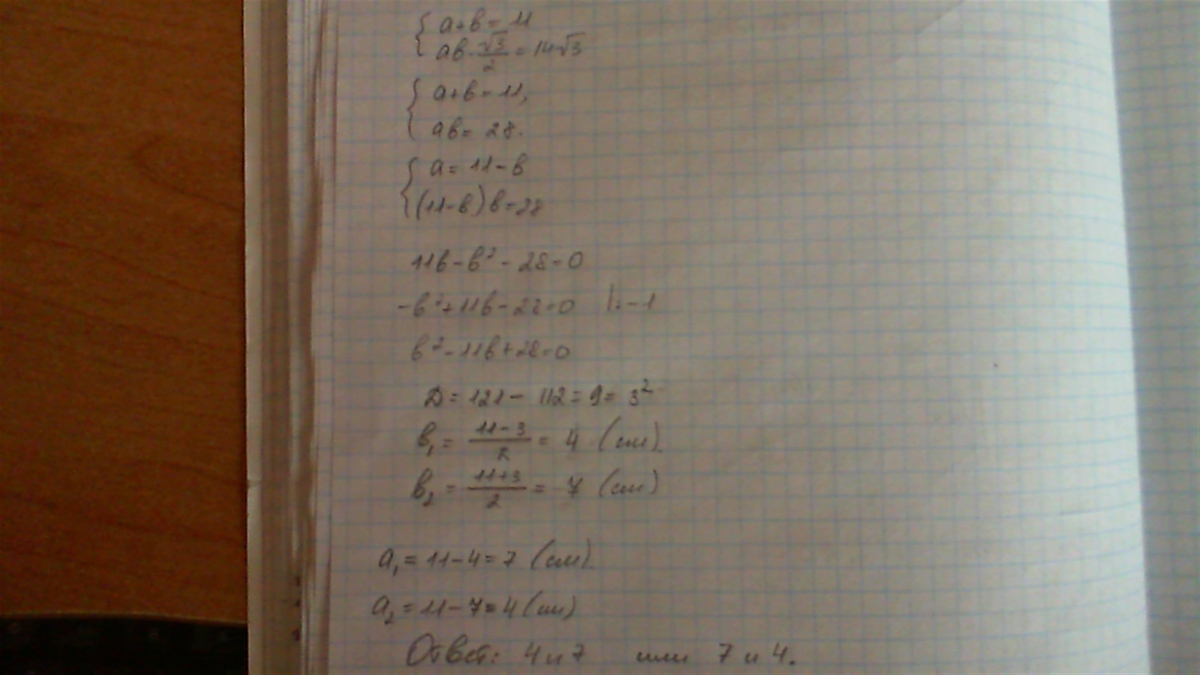 { a+b = 11
ab · √3/2 = 14√3
{ a+b = 11,
ab = 28.
{ a = 11-b
(11-b)b=28
11b-b²-28=0
-b²+11b-28=0 |:-1
b²-11b+28=0
D = 121 - 112 = 9 = 3²
b₁ = (11-3)/2 = 4 (см).
b₂ = (11+3)/2 = 7 (см)
a₁ = 11-4 = 7 (см).
a₂ = 11-7 = 4 (см)
Ответ: 4 и 7 или 7 и 4.